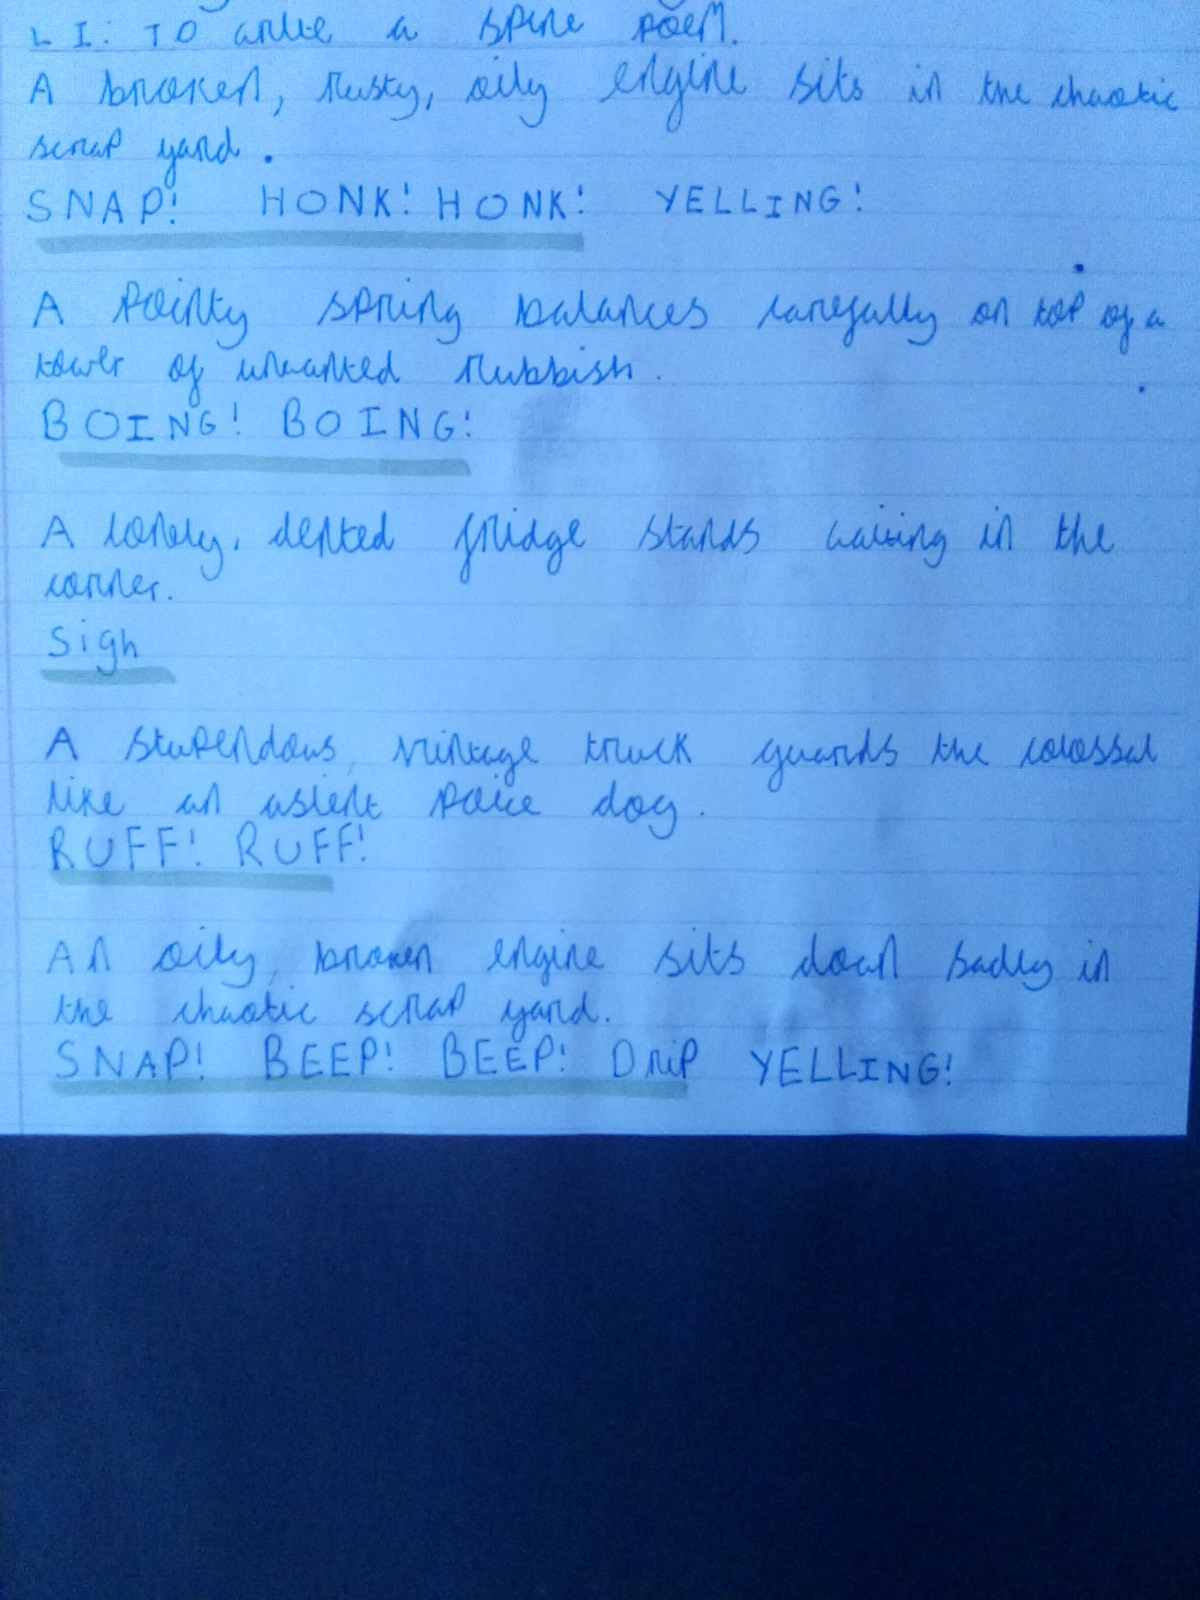 LI: TO write a spine poem.
A broken, rusty, oily engine sits in the chaotic
scrap yard.
SNAP! HONK! HONK! YELLING!
A pointy spring balances carefully on top of a
tower of unwanted rubbish.
BOING! BOING!
A lonely, dented fridge stands waiting in the
corner.
Sigh
A stupendous, vintage truck guards the colossal
like an police dog.
RUFF! RUFF!
An oily, broken engine sits down sadly in
the chaotic scrap yard.
SNAP! BEEP! BEEP! Drip YELLING!